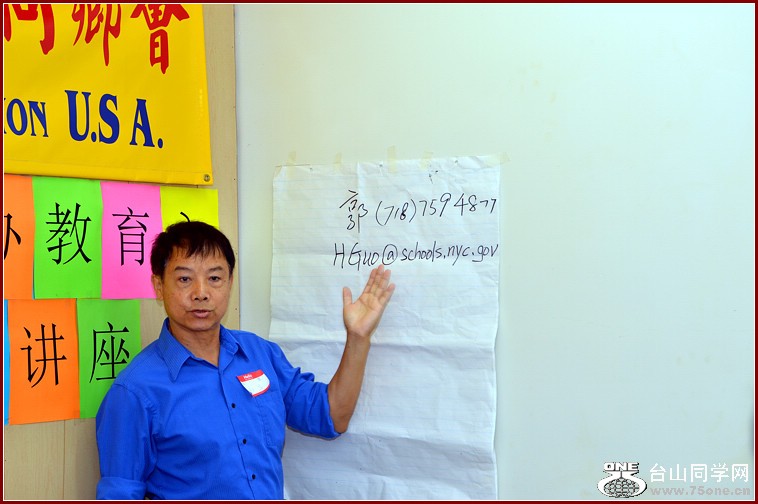 同鄉會
ION U.S.A.
教育
讲座
郭 (718)7594877
HGuo@schools.nyc.gov
ONE
台山同学网
www.75one.com